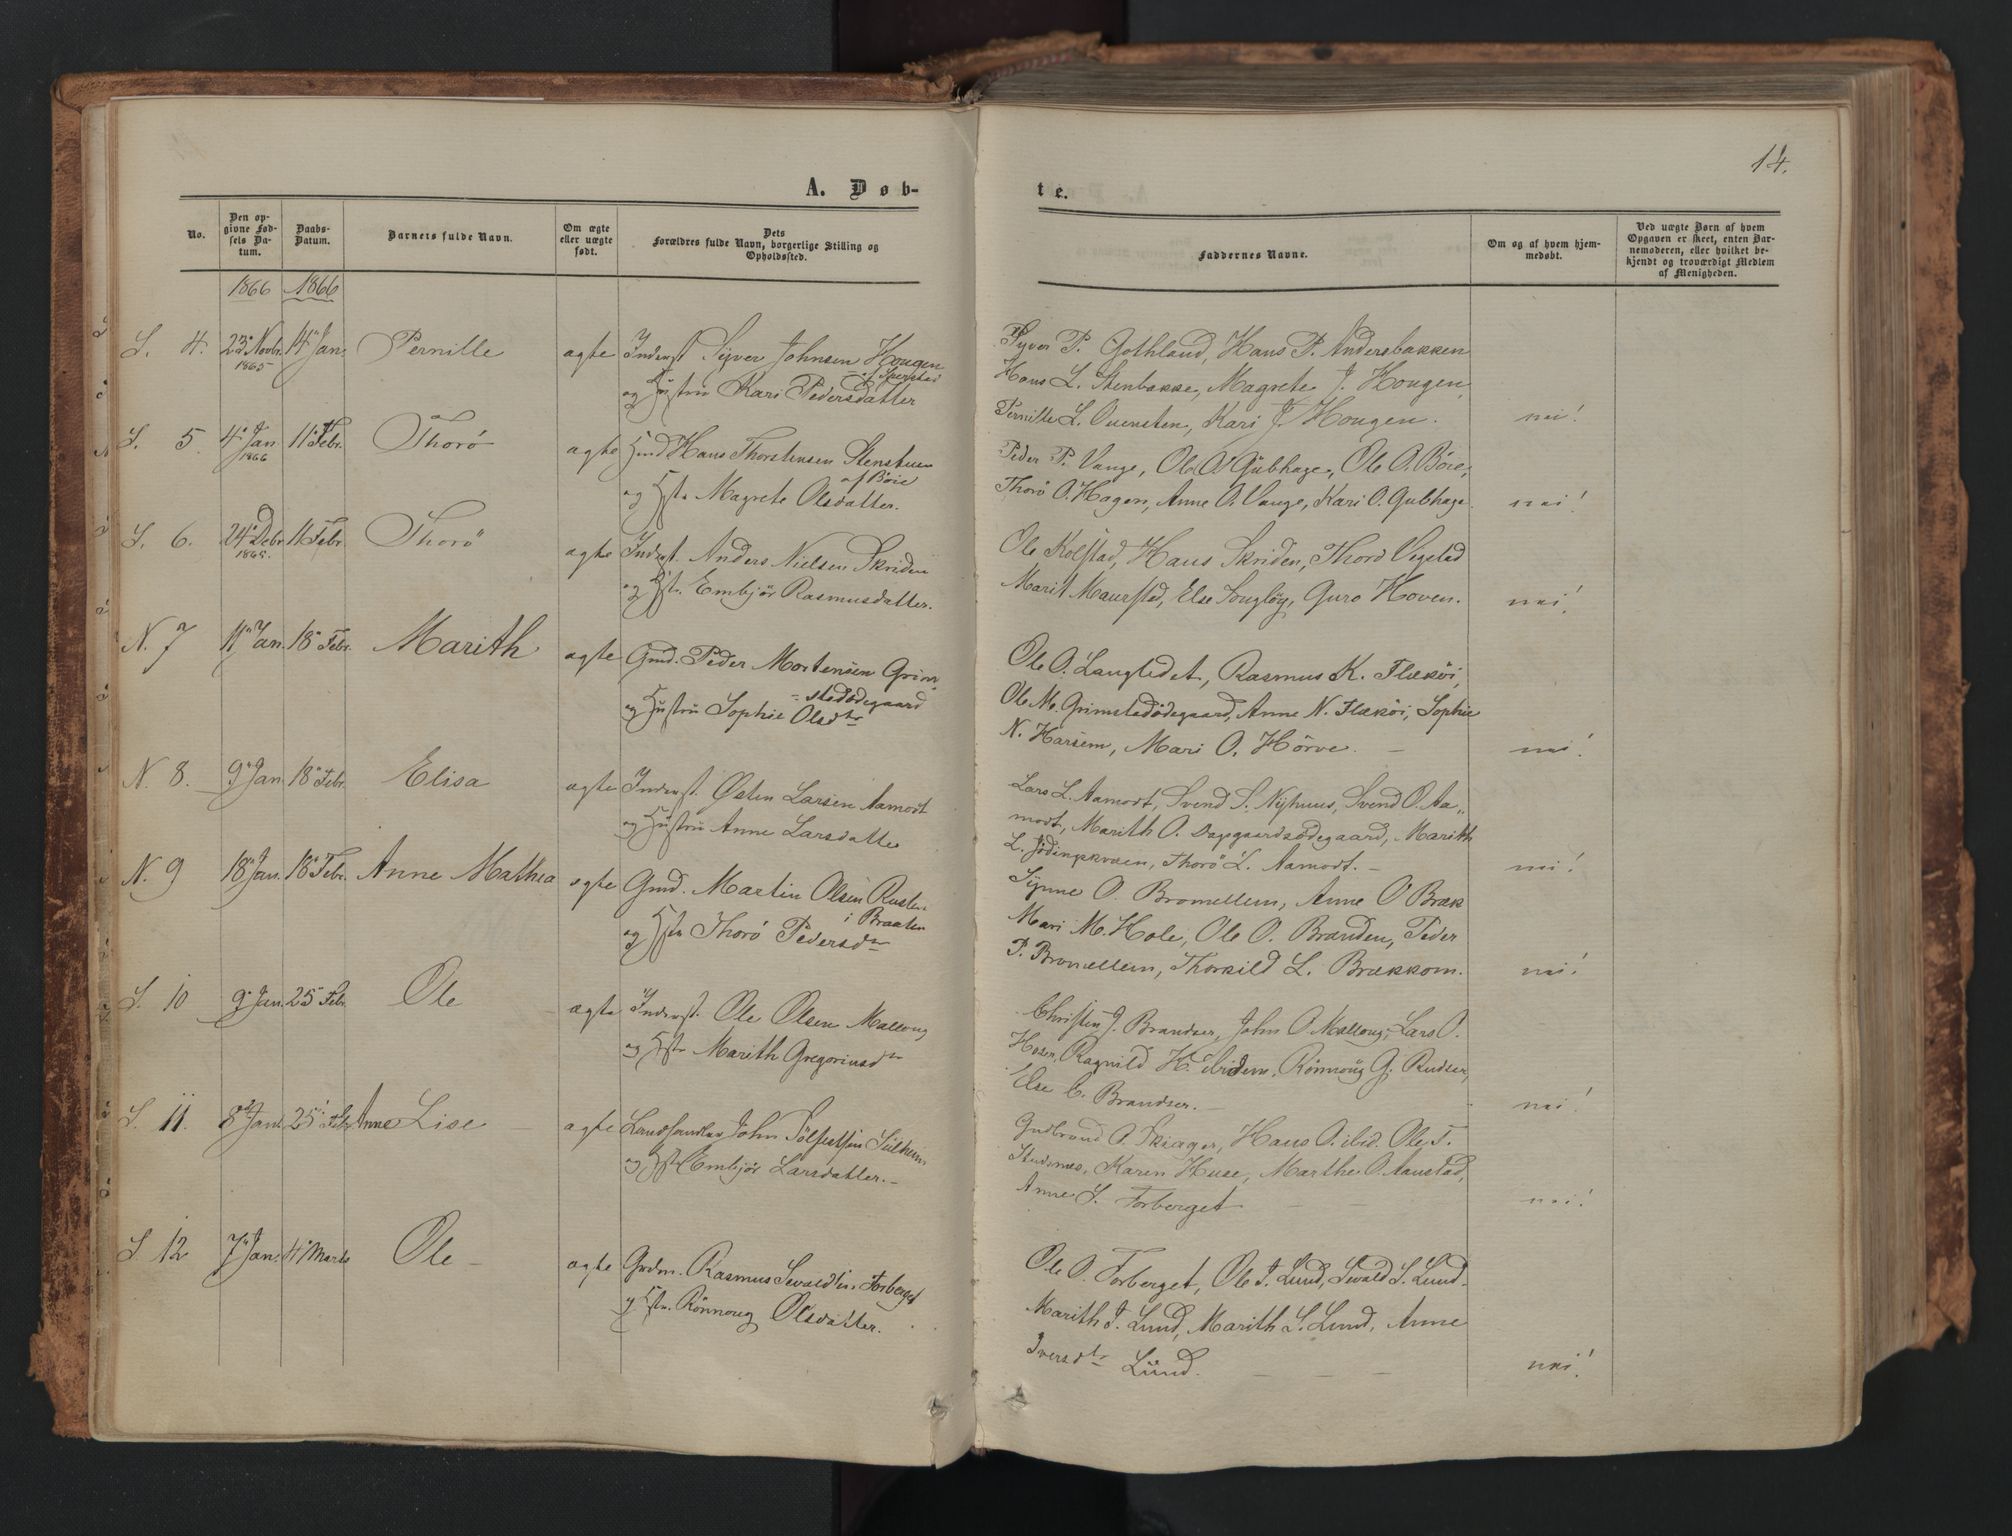 14.
A. Døb-
te.
No.
Den op-
givne Fød-
sels Da-
tum.
Daabs-
Datum.
Barnets fulde Navn.
Om ægte
eller uægte
født.
Dets
Forældres fulde Navn, borgerlige Stilling og
Opholdssted.
Faddernes Navne.
Om og af hvem hjem-
medøbt.
Ved uægte Børn af hvem
Opgaven er skeet, enten Bar-
nemoderen, eller hvilket be-
kjendt og troværdigt Medlem
af Menigheden.
1866 1866
S. 4. 23 Novbr. 1865 14 Jan. Pernille ægte Inderst Syver Johnsen Hougen
og Hustru Kari Pedersdatter
Syver P. Gothland, Hans P. Andersbakken
Hans L. Stenbakke, Magrete J. Hougen,
Pernille L. Kari J. Hougen. nei!
S. 5. 4 Jan. 1866 11 Febr. Thorø ægte Hans Thorstensen
af Böie
og Hstr Magrete Olsdatter.
Peder P. Vange, Ole Gubhage, Ole O. Böie,
Thorö O. Hagen, Anne O. Vange, Kari O. Gubhage. nei!
S. 6. 24 Debr. 1865. 11 Febr. Thorö ægte Inderst. Anders Nielsen Skriden
og Hstr. Embjör Rasmusdatter.
Ole Kolstad, Hans Skriden, Thord
Marit Maurstad, Else Guro Hoven. nei!
N. 7 11 Jan. 18 Febr. Marith ægte Gmd. Peder Mortensen Grim-
=stadödegaard
og Hustru Sophie Olsdtr
Ole O. Langledet, Rasmus K. Flæköi,
Ole M. Grimstadödegaard, Anne N. Flæköi, Sophie
N. Harsem, Mari O. Hörve. nei!
N. 8. 9 Jan. 18 Febr. Elisa ægte Inderst. Østen Larsen Aamodt
og Hustru Anne Larsdatter
Lars L. Aamodt, Svend S. Nyhuus, Svend O. Aa-
modt, Marith O. Marith
L. Thorö L. Aamodt. nei!
N. 9 18 Jan. 18 Febr. Anne Mathea ægte Gmd. Martin Olsen Rusten
i Braaten
og Hstr Thorö Pedersdtr
Synne O. Bromellem, Anne O Bræk
Mari M. Hole, Ole O. Branden, Peder
P. Bromellem, Thorkild L. Brækkom. nei!
S. 10 9 Jan. 25 Febr. Ole ægte Inderst. Ole Olsen
og Hstr Marith Gregoriusdtr
Christen J. Brandser, John O. Lars O.
Ragnild K. ibidem, Rönnoug G. Rudser,
Else C. Brandser. nei!
S. 11. 8 Jan. 25 Febr Anne Lise ægte Landhandler John
og Hstr Embjör Larsdatter.
Gudbrand O. Skiager, Hans O. ibid. Ole T.
Karen Huse, Marthe O. Aaustad,
Anne S. Forberget nei!
S. 12 7 Jan. 4 Marts Ole ægte Grdm. Rasmus Forberget
og Hstr. Rönnoug Olsdatter.
Ole O. Forberget, Ole J. Lund, Sevald S. Lund.
Marith J. Lund, Marith S. Lund, Anne
Iversdtr Lund. nei!